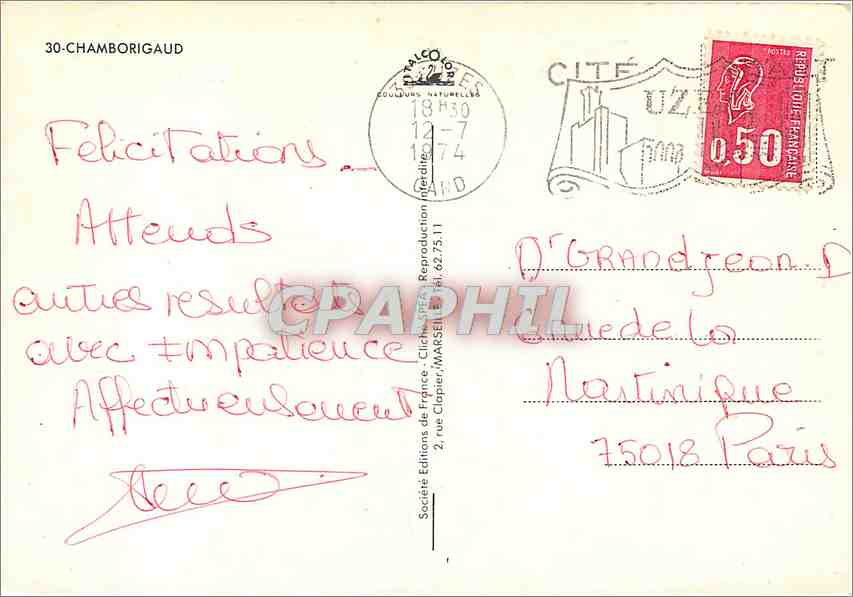 30-CHAMBORIGAUD
ITALCOLOR
COULEURS NATURELLES
18 H 30
12-7
1974
GARD
CITÉ
UZ
REPUBLIQUE FRANÇAISE
0,50
Félicitations
Attends
autres resultats
avec Impatience
Affectueusement
Société Editions de France - Cliché SPEA - Reproduction interdite
2, rue Clapier, MARSEILLE - Tél. 62.75.11
Dr GRANDjean D
de la
Martinique
75018 Paris
CPAPHIL